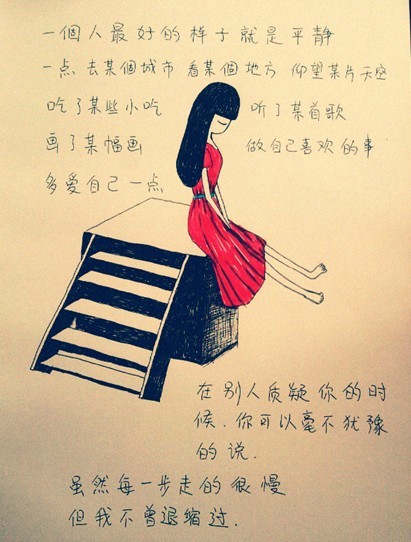 一個人最好的样子就是平静
一点 去某個城市 看某個地方 仰望某片天空
吃了某些小吃 听了某首歌
画了某幅画 做自己喜欢的事
多爱自己一点
在别人质疑你的时
候.你可以毫不犹豫
的说.
虽然每一步走的很慢
但我不曾退缩过.